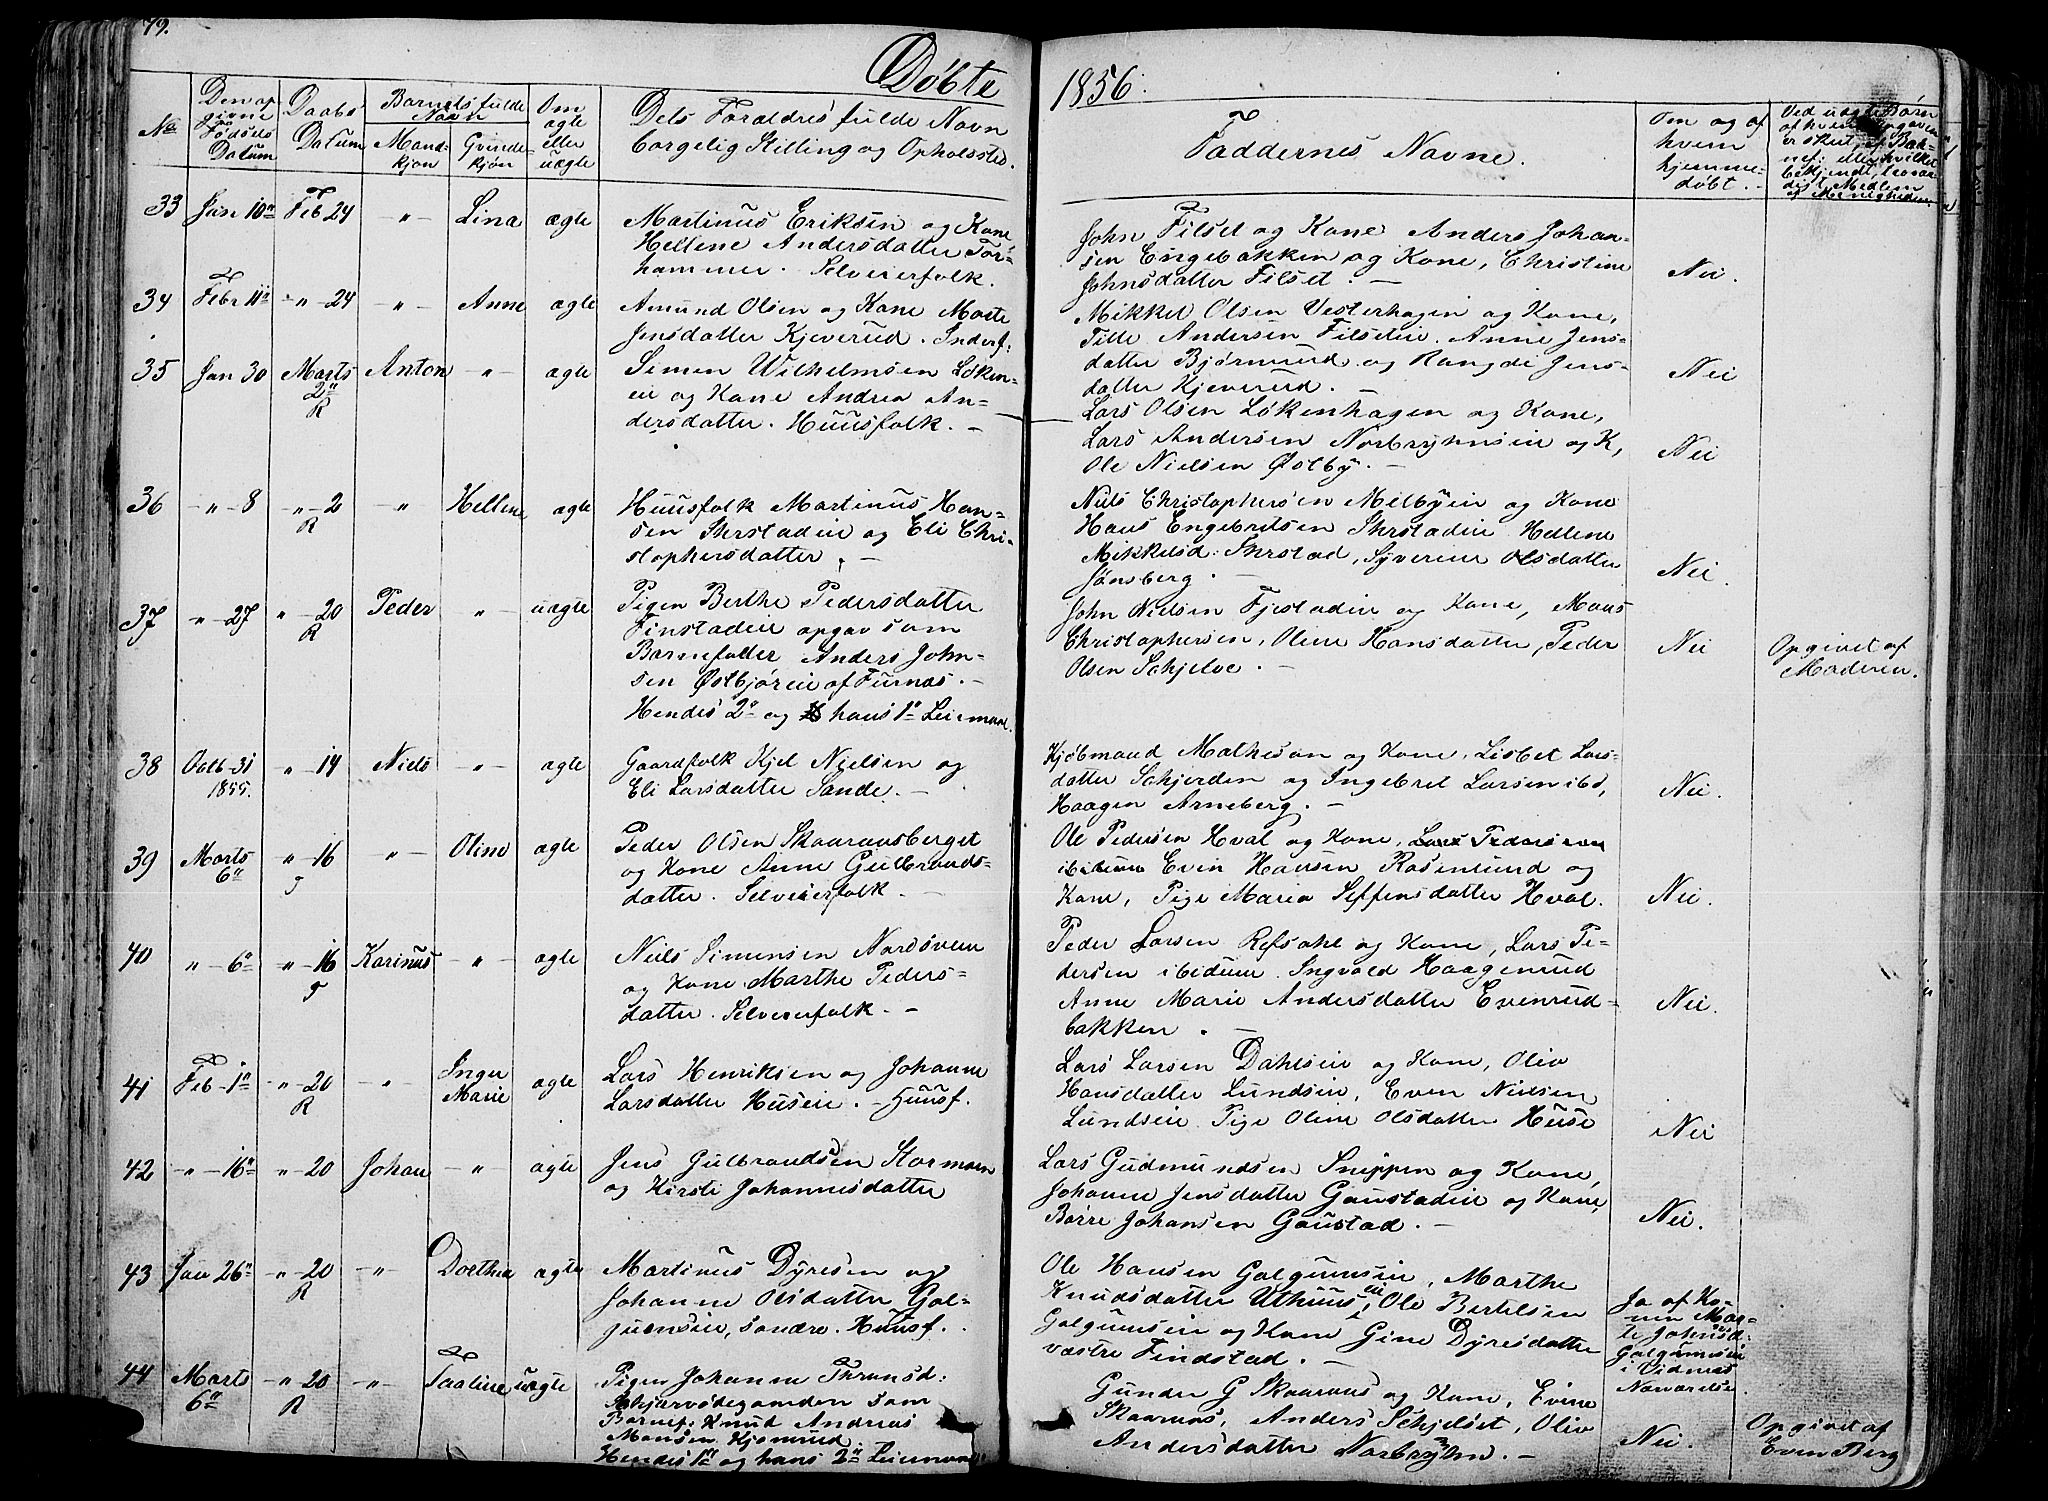 79.
Döbte
1856.
No
Den op
givne
Födsels
Datum
Daabs
Datum
Barnets fulde
Navn
Mand-
kjön
Qvinde-
kjön
Om
ægte
eller
uægte
Dets Forældres fulde Navn
borgelig Stilling og Opholdssted.
Faddernes Navne.
Om og af
hvem
hjemme-
döbt.
Ved uægte Börn
33 Jan 10de Feb 24 -"- Lina ægte
Martinus Eriksen og Kone
Hellene Andersdatter Tor-
hammer. Selveierfolk.
John Filset og Kone Anders Johan-
sen Engebakken og Kone, Christine
Johnsdatter Filset. -
Nei.
34 Febr 11te -"-24 -"- Anne ægte
Amund Olsen og Kone Marte
Jensdatter Kjeverud. Inderf:
Mikkel Olsen Vesterhagen og Kone,
Tille Andersen Filseteie. Anne Jens-
datter Björnerud og Rangdi Jens-
datter Kjeverud. -
Nei
35 Jan 30 Marts 2de R Anton -"- ægte
Simen Wilhelmsen Löken-
eie og Kone Andrea An-
dersdatter. Huusfolk. -
Lars Olsen Lökenhagen og Kone,
Lars Andersen Norbrynseie og K,
Ole Nielsen Östby. -
Nei
36 -"-8 -"-2 R -"- Hellene ægte
Huusfolk Martinus Han-
sen Skrstadeie og Eli Chri-
stophersdatter. -
Niels Christophersen Melbyeie og Kone
Hans Engebretsen Skrstadeie Hellene
Mikkelsd: Skrstad, Syverine Olsdatter
Jönsberg. -
Nei.
37 -"-27 "-20 R Peder -"- uægte
Pigen Berthe Pedersdatter
Finstadeie opgav som
Barnefader Anders John-
sen Östbjöreie af Furnæs. -
Hendes 2de og hans 1te Leiermaal.
John Nielsen Fjestadeie og Kone, Mons
Christophersen, Oline Hansdatter, Peder
Olsen Schjelve. -
Nei
Opgivet af
Moderen.
38 Octb-31 1855. "-14 Niels -"- ægte
Gaardfolk Kjel Nielsen og
Eli Larsdatter Sande. -
Kjöbmand Mathesan og Kone, Lisbet Lars-
datter Schjerden og Ingebret Larsen ibd,
Haagen Arneberg. -
Nei.
39 Marts 6te "-16 -"- Oline ægte
Peder Olsen Skaaraasberget
og Kone Anne Gulbrands-
datter. Selveierfolk. -
Ole Pedersen Hval og Kone, Lars Pedersen
ibidum Even Hansen Rosenlund og
Kone, Pige Maria Steffensdatter Hval.
Nei.
40 "-6te "-16 Karinus -"- ægte
Niels Simensen Nordsveen
og Kone Marthe Peders-
datter. Selveierfolk. -
Peder Larsen Refsahl og Kone, Lars Pe-
dersen ibidum. Ingvald Haagenrud
Anne Marie Andersdatter Evenrud-
bakken. -
Nei.
41 Feb-1te "-20 R -"- Inger Marie ægte
Lars Henriksen og Johanne
Larsdatter Huseie. - Huusf.
Lars Larsen Dahlseie og Kone, Oliv
Hansdatter Lundseie, Even Nielsen
Lundseie. Pige Oline Olsdatter Huse
Nei
42 -"-16te "-20 Johan -"- ægte
Jens Gulbrandsen Stormoen
og Kirsti Johannesdatter
Lars Gudmundsen Snippen og Kone,
Johanne Jensdatter Gaustadeie og Kone,
Börre Johansen Gaustad. -
Nei.
43 Jan 26te "-20 R -"- Dorthea ægte
Martinus Dyresen og
Johanne Olsdatter Gal-
gumseie, söndre. Huusf.
Ole Hansen Galgumseie, Marthe
Knudsdatter Uthuuseie, Ole Bertelsen
Galgumseie og Kone Gine Dyresdatter
vestre Findstad. -
Ja af Ko-
nen Mar-
te Johnsd.
Galgumseie
i Vidners
Nærværelse.
44 Marts 6te -"-20 R -"- Taaline uægte
Pigen Johanne Thronsd:
som
Barnef: Knud Andreas
Monsen Kjernerud
Hendes 1te og hans 2de Leiermaal
Gunder G Skaaraas og Kone, Evine
Skaaraas, Anders Schjelset, Oliv
Andersdatter Norbryhn. -
Nei.
Opgivet af
Even Berg